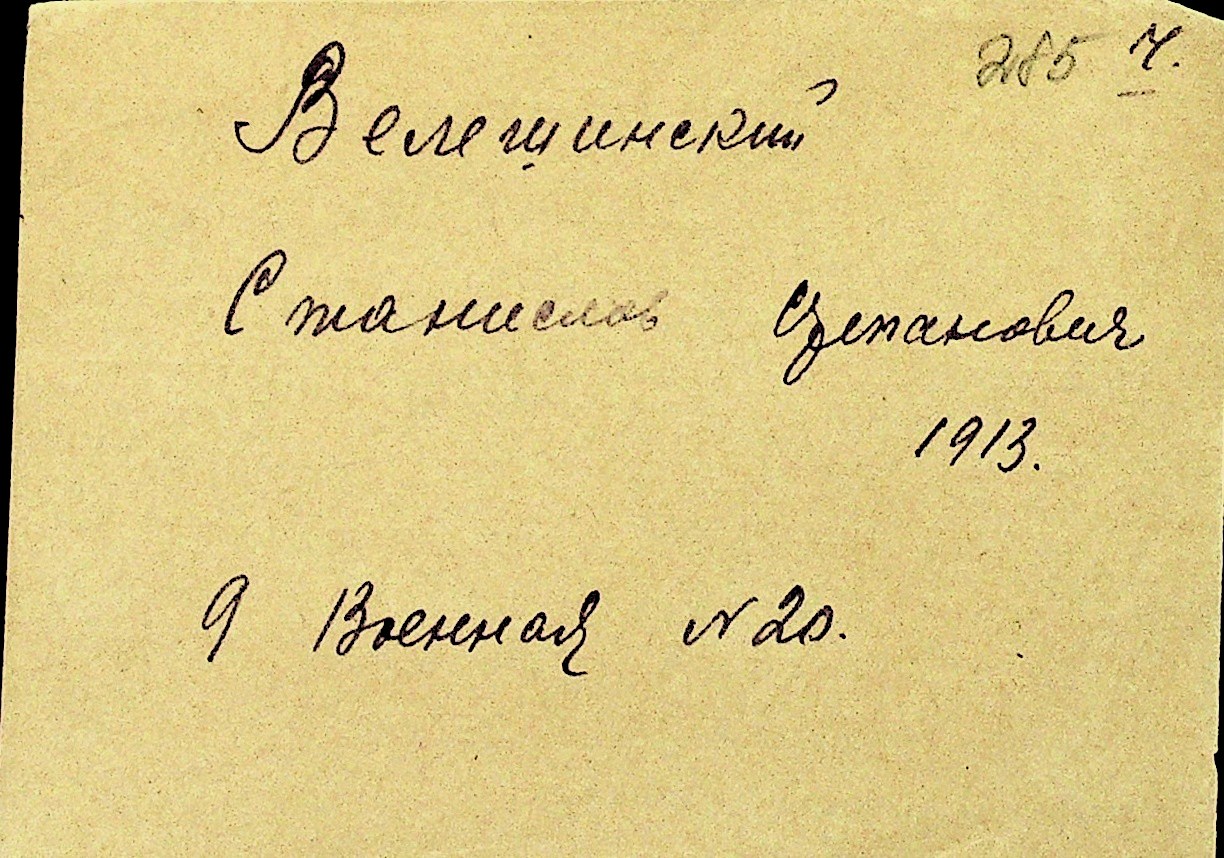 285 ч.
Велешинский
Станислав Степанович
1913.
9 Военная N 20.